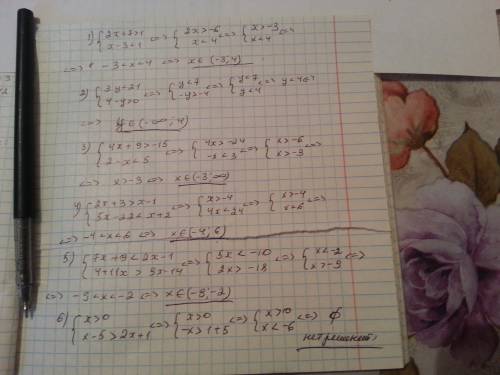 1) { 2x+7>1 x-3<1 ⇔ { 2x>-6 x<4 ⇔ { x>-3 x<4 ⇔
⇔ -3<x<4 ⇔ x∈(-3;4)
2) { 3y<21 4-y>0 ⇔ { y<7 -y>-4 ⇔ { y<7 y<4 ⇔ y<4 ⇔
⇔ y∈(-∞;4)
3) { 4x+9>-15 2-x<5 ⇔ { 4x>-24 -x<3 ⇔ { x>-6 x>-3 ⇔
⇔ x>-3 ⇔ x∈(-3;∞)
4) { 2x+3>x-1 5x-22<x+2 ⇔ { x>-4 4x<24 ⇔ { x>-4 x<6 ⇔
⇔ -4<x<6 ⇔ x∈(-4;6)
5) { 7x+9<2x-1 4+11x>9x-14 ⇔ { 5x<-10 2x>-18 ⇔ { x<-2 x>-9 ⇔
⇔ -9<x<-2 ⇔ x∈(-9;-2)
6) { x>0 x-5>2x+1 ⇔ { x>0 -x>1+5 ⇔ { x>0 x<-6 ⇔ ∅
нет решений.